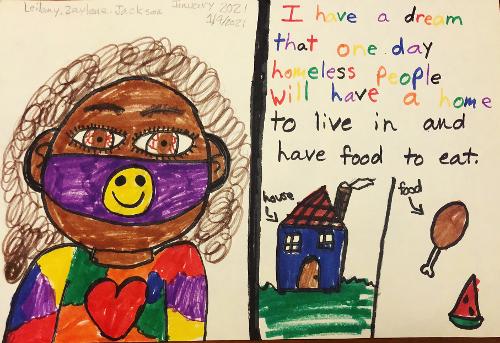 Leilany, Zaylene Jackson
January 2021
1/9/2021
I have a dream
that one day
homeless people
will have a home
to live in and
have food to eat.
house
food